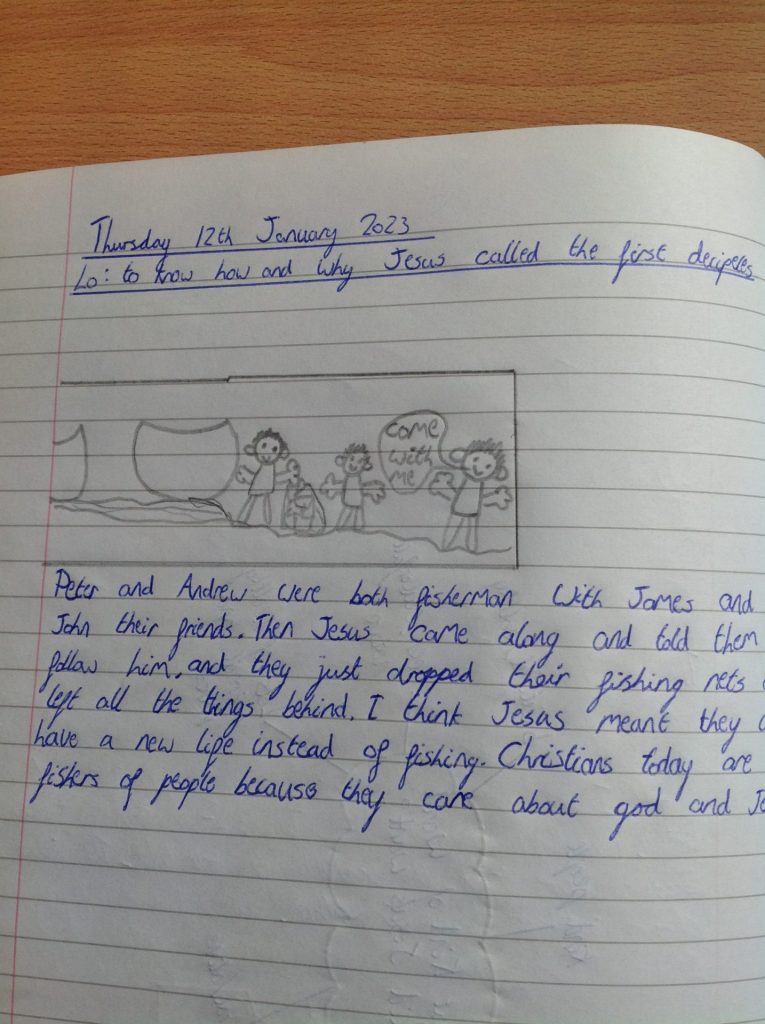 Thursday 12th January 2023
Lo: to know how and why Jesus called the first decipeles
come
with
me
Peter and Andrew were both fisherman with James and
John their friends. Then Jesus came along and told them
follow him, and they just dropped their fishing nets
left all the things behind. I think Jesus meant they
have a new life instead of fishing. Christians today are
fishers of people because they care about god and